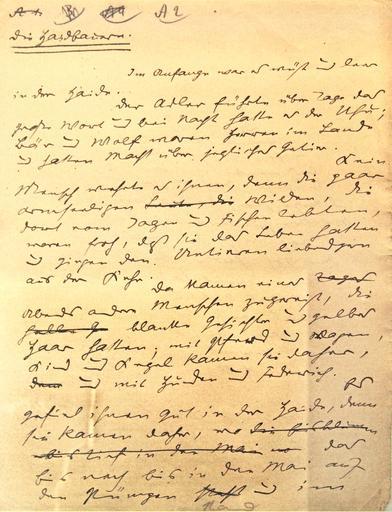 A 2
Die Haidbauern.
Im Anfange war es wüst und leer
in der Haide.
Der Adler führte über Tage das
große Wort und bei Nacht hatte es der Uhu;
Bär und Wolf waren Herren im Lande
und hatten Macht über jegliches Getier.
Kein
Mensch wehrte es ihnen, denn die paar
armseligen Wilden, die
dort vom Jagen und Fischen lebten,
waren froh, daß sie das Leben hatten
und gingen den Untieren liebendgern
aus der Kehr.
Da kamen eines
Abends andere Menschen zugereist, die
blanke Gesichter und gelbes
Haar hatten; mit Pferd und Wagen,
Kind und Kegel kamen sie daher,
und mit Hunden und Federvieh.
Es
gefiel ihnen gut in der Haide, denn
sie kamen daher, wo die
bis tief in den Mai das
Eis noch bis in den Mai auf
den Pümpen stand und im